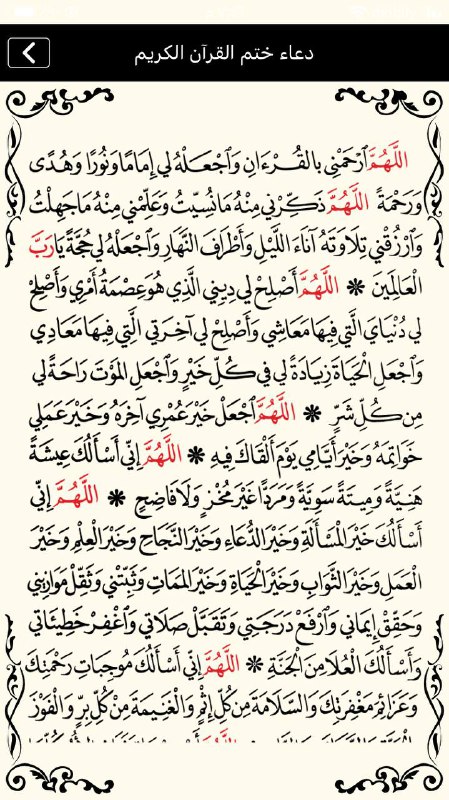 دعاء ختم القرآن الكريم
اللَّهُمَّ ٱرْحَمْنِي بالقُـــرْءَانِ وَٱجْعَـلْهُ لي إِمَامًا وَنُورًا وَهُدًى
وَرَحْمَةً اللَّهُمَّ ذَكِّرْنِي مِنْهُ مَانُسِّيتُ وَعَلِّمْنِي مِنْهُ مَاجَهِلْتُ
وَٱرْزُقْنِي تِلَاوَتَهُ آنَاءَ اللَّيْلِ وَأَطْرَافَ النَّهَارِ وَٱجْعَلْهُ لي حُجَّةً يَارَبَّ
الْعَالَمِينَ ❋ اللَّهُمَّ أَصْلِحْ لي دِينِي الَّذِي هُوَعِصْمَةُ أَمْرِي وَأَصْلِحْ
لي دُنْيَايَ الَّتِي فِيهَا مَعَاشِي وَأَصْلِحْ لي آخِـرَتِي الَّتِي فِيهَا مَعَادِي
وَٱجْعَلِ الْحَيَاةَ زِيَادَةً لي فِي كُـلِّ خَيْرٍ وَٱجْعَلِ المَوْتَ رَاحَةً لي
مِن كُـلِّ شَرٍّ ❋ اللَّهُمَّ ٱجْعَلْ خَيْرَ عُمْرِي آخِرَهُ وَخَيْرَ عَمَلِي
خَوَاتِمَهُ وَخَيْرَ أَيَّامِي يَوْمَ أَلْقَاكَ فِيهِ ❋ اللَّهُمَّ إِنِّي أَسْأَلُكَ عِيشَةً
هَنِيَّةً وَمِيـتَةً سَوِيَّةً وَمَرَدًّا غَيْرَ مُخْزٍ وَلَا فَاضِحٍ ❋ اللَّهُمَّ إِنِّي
أَسْأَلُكَ خَيْرَ الْمَسْأَلَةِ وَخَيْرَ الدُّعَاءِ وَخَيْرَ النَّجَاحِ وَخَيْرَ الْعِلْمِ وَخَيْرَ
الْعَمَلِ وَخَيْرَ الثَّوَابِ وَخَيْرَ الْحَيَاةِ وَخَيْرَ المَمَاتِ وَثَبِّتْنِي وَثَقِّلْ مَوَازِينِي
وَحَقِّقْ إِيمَانِي وَٱرْفَعْ دَرَجَـتِي وَتَقَبَّلْ صَلَاتِي وَٱغْفِرْ خَطِيئَاتِي
وَأَسْأَلُكَ الْعُلَا مِنَ الْجَنَّةِ ❋ اللَّهُمَّ إِنِّي أَسْأَلُكَ مُوجِبَاتِ رَحْمَتِكَ
وَعَزَائِمَ مَغْفِرَتِكَ وَالسَّلَامَةَ مِن كُلِّ إِثْمٍ وَالْغَنِيـمَةَ مِنْ كُلِّ بِرٍّ وَالْفَوْزَ